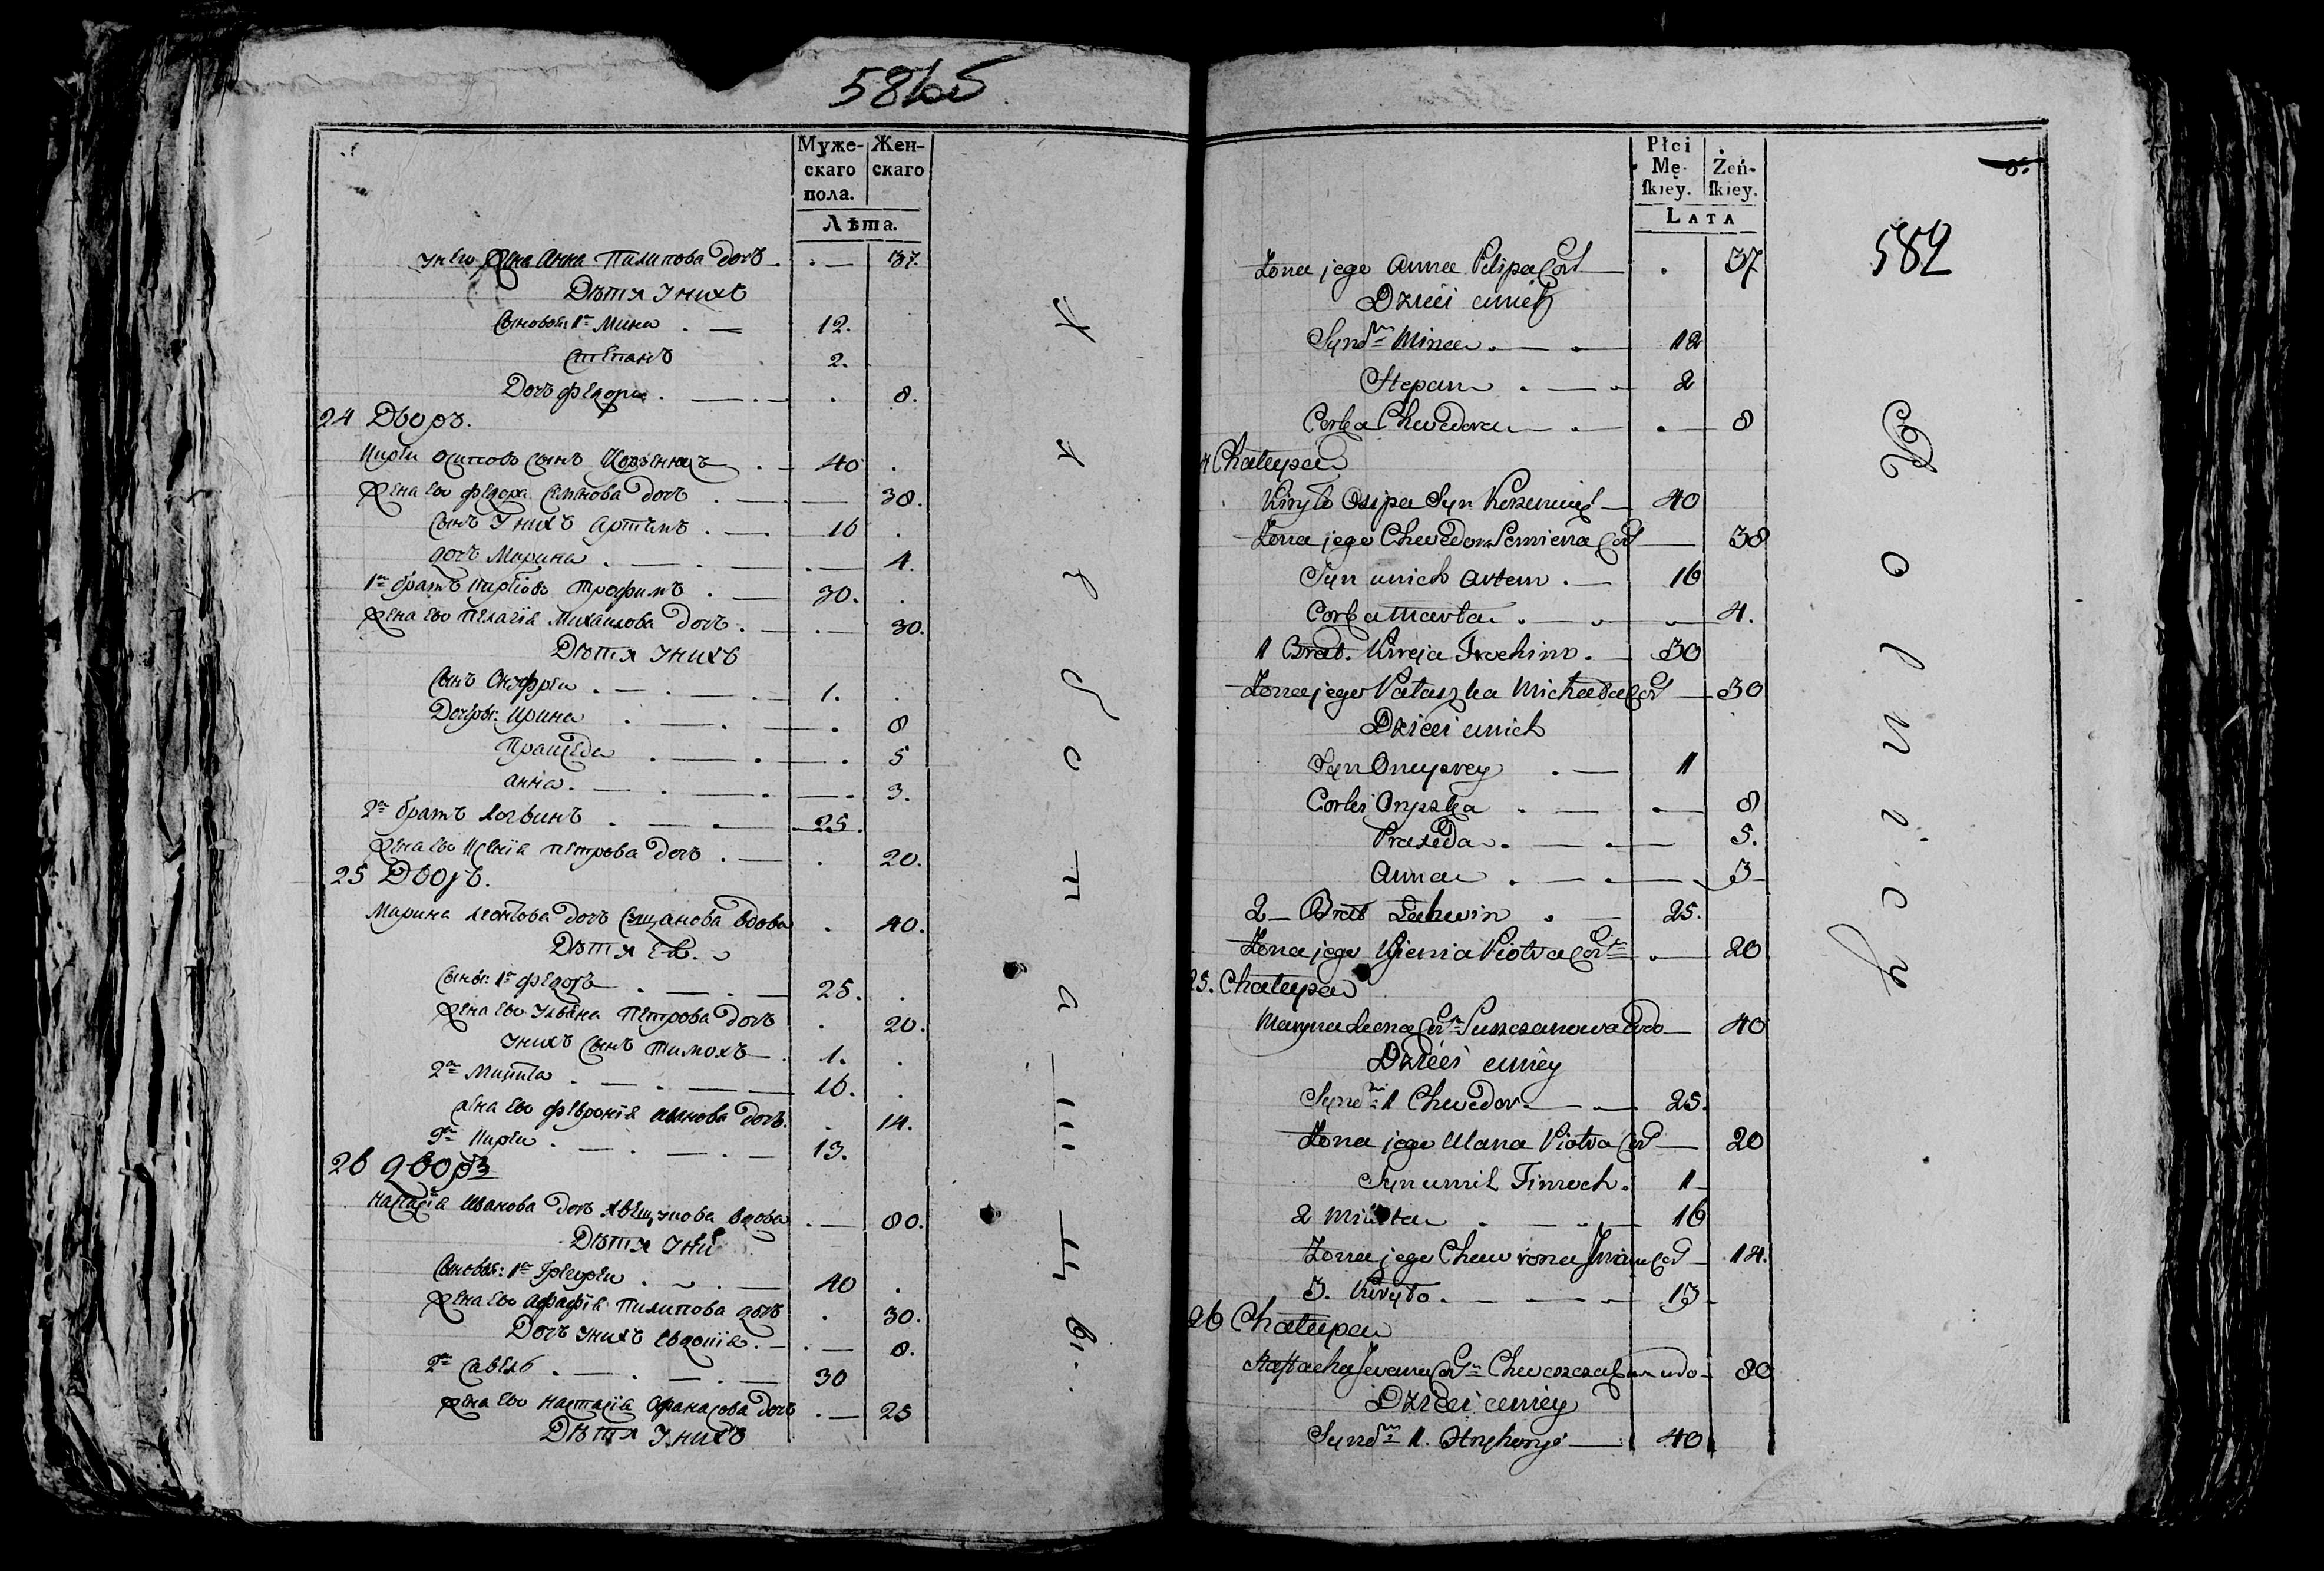 581об
Муже-
скаго
пола.
Жен-
скаго
Лѣта.
жена Анна Пилипова дочъ 37.
Дѣтя Унихъ
Сыновя: 1й Мина 12.
Степанъ 2.
Дочъ Федора 8.
24 Дворъ.
Кирѣи Осиповъ Сынъ 40
Жена Ево Федора Семѣнова дочъ 38.
Сынъ Унихъ Артѣмъ 16
дочъ Марина 4.
1й братъ Кирѣювъ Трофимъ 30.
Жена Ево Пелагія Михаилова дочъ 30.
Дѣтя Унихъ
Сынъ Онуфрѣи 1.
Дочѣры: Ирина 8
Пращеда 5
Анна 3.
2й братъ Логвинъ 25.
Жена Ево Ксенія Петрова дочъ 20.
25 Дворъ.
Марина дочъ Сущанова вдова 40.
Дѣтя Ея
Сыны: 1й Федоръ 25.
Жена Ево Ульяна Петрова дочъ 20.
Унихъ Сынъ Тимохъ 1.
2й Микита 16.
Жена Ево Феѵронія Иванова дочъ 14.
3й Кирѣи 13.
26 дворъ
Настасія Иванова дочъ вдова 80.
Дѣтя Унѣи
Сыновя: 1й Григорѣи 40
Жена Ево Агафія Пилипова дочъ 30.
Дочъ Унихъ Евдокія 8.
2й Савѣлѣ 30
Жена Ево Настасія Афанасова дочъ 25
Дѣтя Унихъ
Płci
Mę-
ſkiey.
Żeń-
ſkiey.
LATA
8.
582
Żona jego Anna Pilipa Cor 37
Dzieci unich
Synow Mina 12
Stepan 2
Corka Chwedora 8
Chałupa
Kiryło Osipa Syn 40
Żona jego Chwedora Semiena Cor 38
Syn unich Artem 16
Corka Marta 4.
1 Brat Kireja Trochim 30
Żona jego Pałaszka Michała Cor 30
Dzieci unich
Syn Onuprey 1
Corki Oryszka 8
Praxeda 5.
Anna 3
2 Brat Łahwin 25.
Żona jego Xienia Piotra Cor 20
25. Chałupa
Maryna Leona Cor Suszczanowa wdo 40
Dzieci uniey
Synow 1 Chwedor 25.
Żona jego Ulana Piotra Cor 20
Syn unich Timoch 1
2 Mikita 16
Żona jego Chawrona Iwana Cor 14.
3. Kiryło 13
26 Chałupa
Nastacha Iwana Cor wdo 80
Dzieci uniey
Synow 1. Hryhory 40
Rolnicy